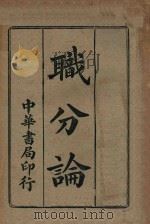 職分論
中華書局印行